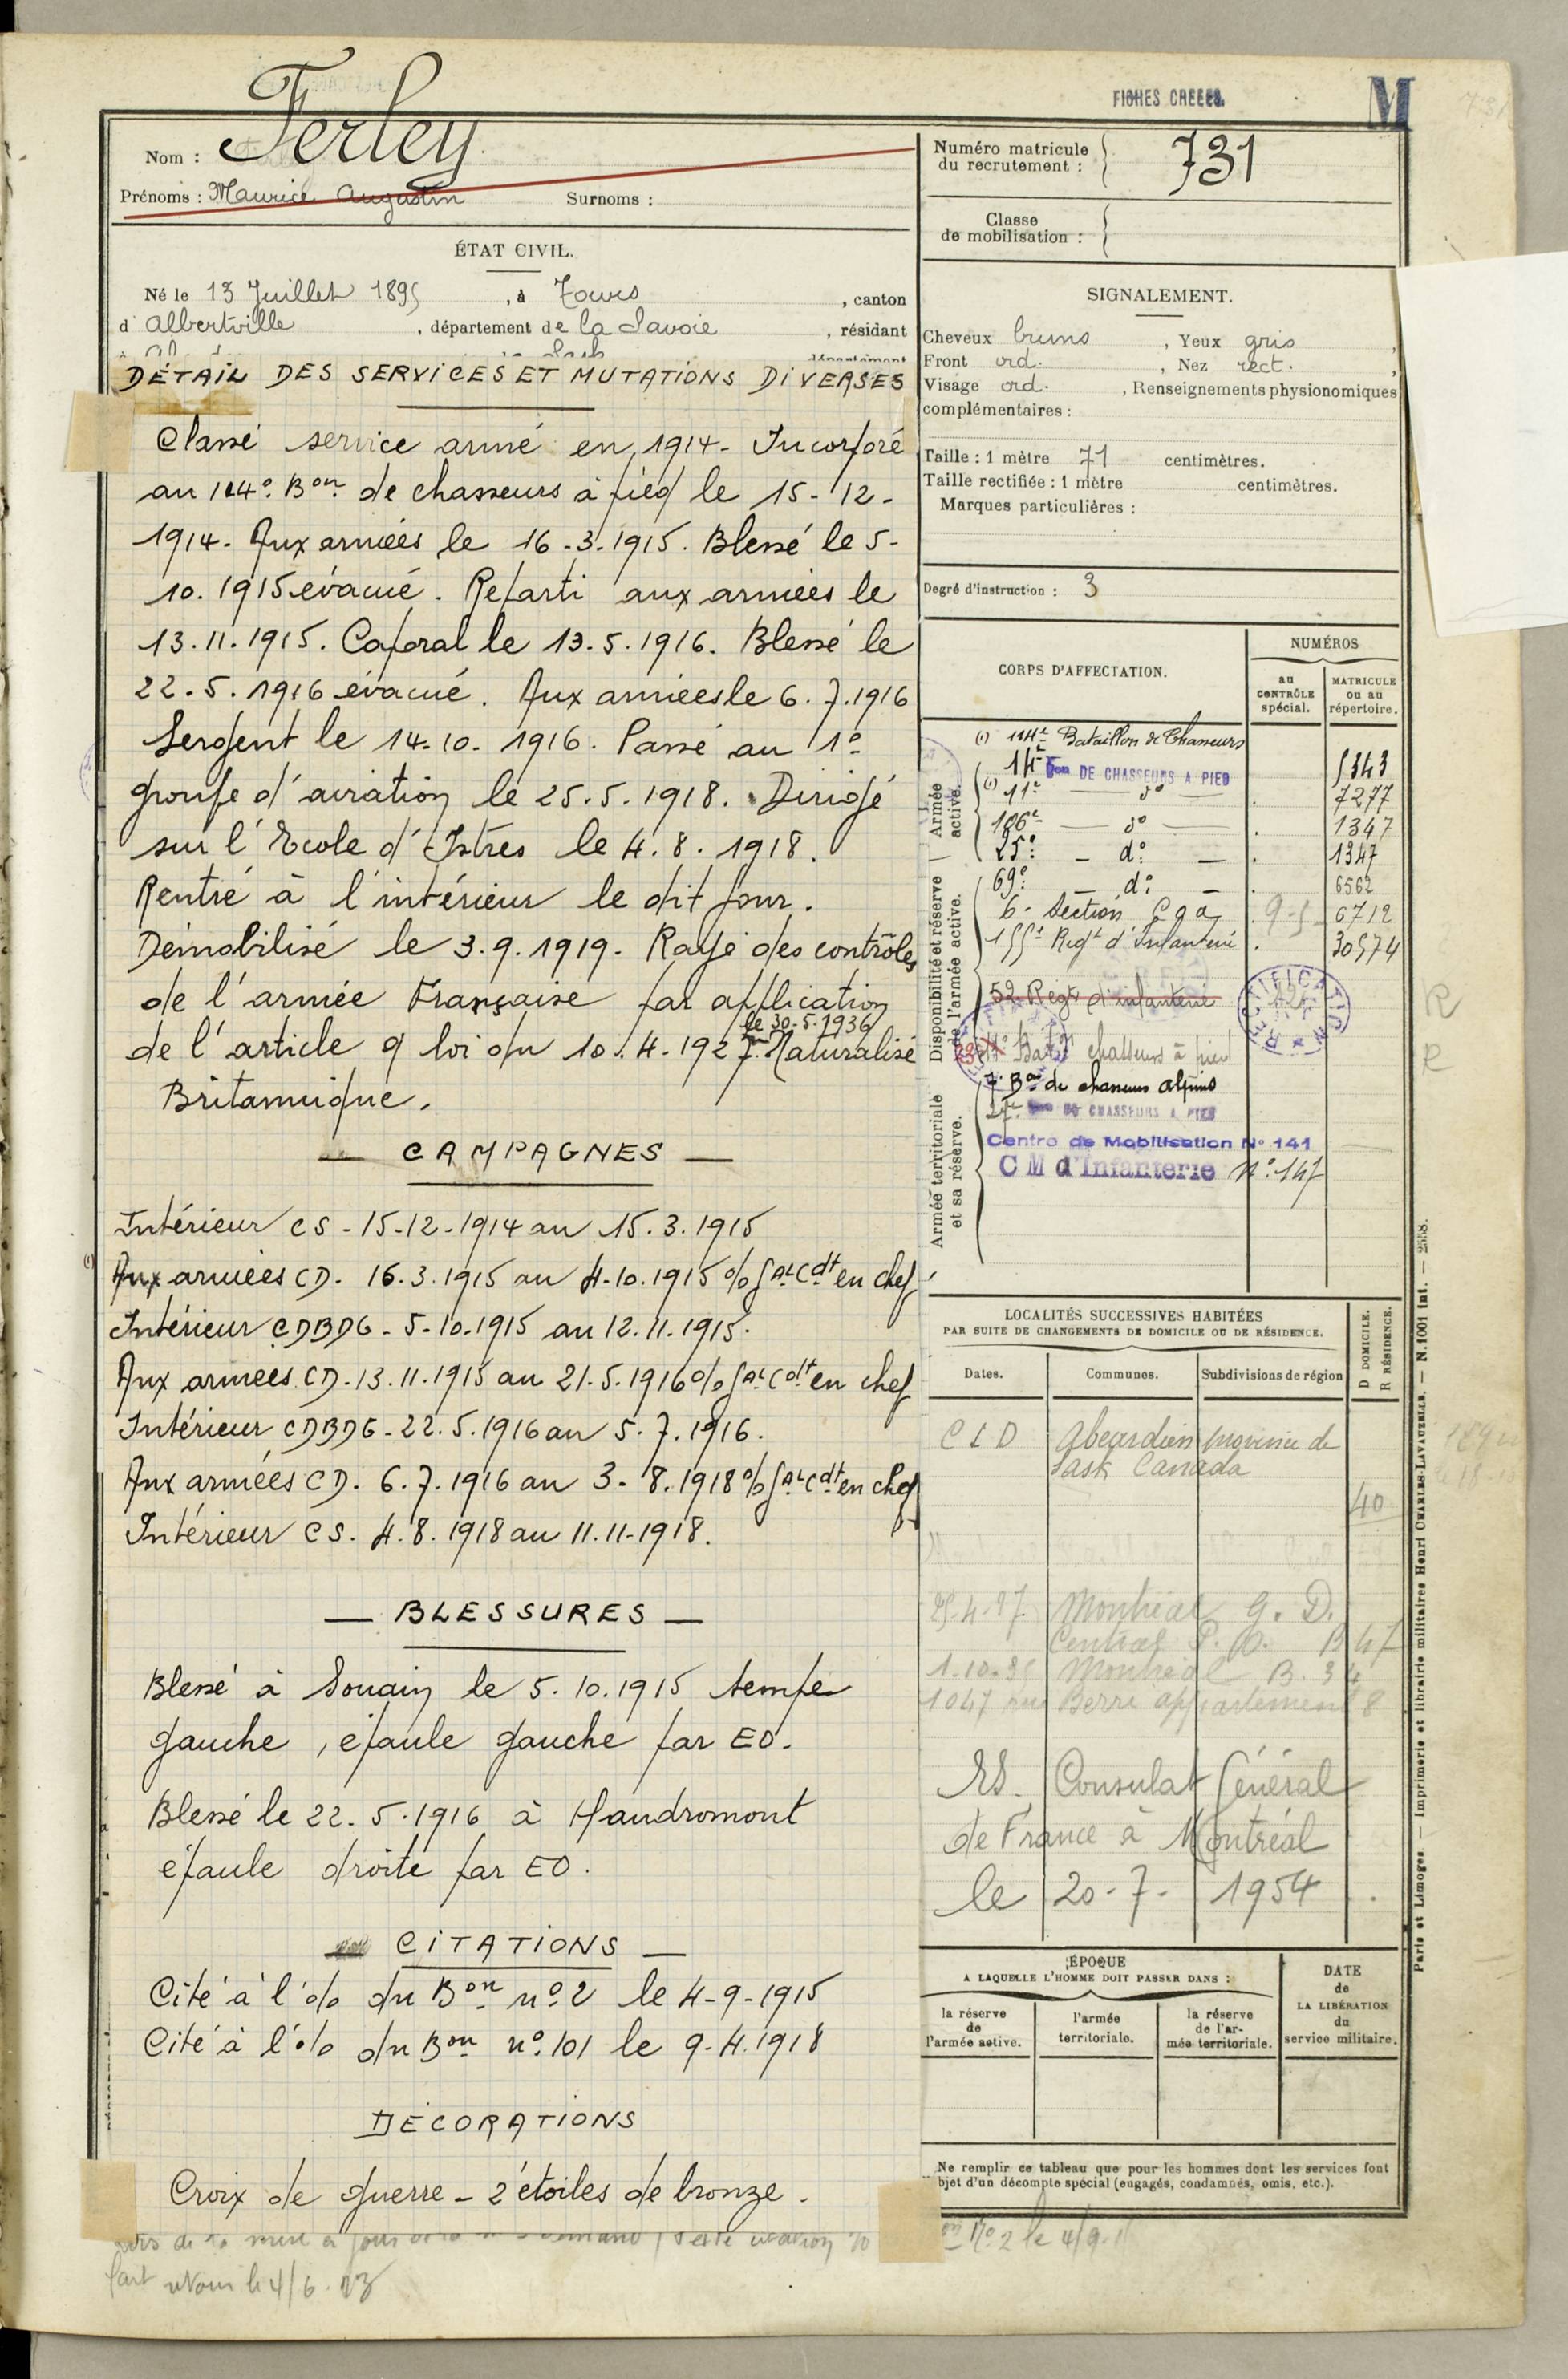 FICHES CREEES.
M
731
Nom : Ferley
Prénoms : Maurice Augustin Surnoms :
ÉTAT CIVIL.
Né le 13 Juillet 1895, à Tours, canton
d'Albertville, département de la Savoie, résidant
DÉTAIL DES SERVICES ET MUTATIONS DIVERSES
Classé service armé en 1914 - Incorporé
au 114° Bon de chasseurs à pied le 15-12-
1914. Aux armées le 16.3.1915. Blessé le 5-
10.1915 évacué. Reparti aux armées le
13.11.1915. Caporal le 13.5.1916. Blessé le
22.5.1916 évacué. Aux armées le 6.7.1916
Sergent le 14-10-1916. Passé au 1°
groupe d'aviation le 25.5.1918. Dirigé
sur l'Ecole d'Istres le 4.8.1918.
Rentré à l'intérieur le dit jour.
Démobilisé le 3.9.1919. Rayé des contrôles
de l'armée Française par application
le 30-5-1936
de l'article 9 loi du 10.4.1927. Naturalisé
Britannique.
— CAMPAGNES —
Intérieur CS - 15-12-1914 au 15.3.1915
(1) Aux armées CD. 16.3.1915 au 4-10.1915 % Gal Cdt en chef
Intérieur CDBDG - 5-10.1915 au 12.11.1915.
Aux armées CD. 13.11.1915 au 21.5.1916 % Gal Cdt en chef
Intérieur CDBDG - 22.5.1916 au 5.7.1916.
Aux armées CD. 6.7.1916 au 3-8.1918 % Gal Cdt en chef
Intérieur CS. 4.8.1918 au 11.11-1918.
— BLESSURES —
Blessé à Souain le 5.10.1915 tempe
gauche, épaule gauche par EO.
Blessé le 22.5.1916 à Haudromont
épaule droite par EO.
CITATIONS —
Cité à l'o/o du Bon n° 2 le 4-9-1915
Cité à l'o/o du Bon n° 101 le 9-4.1918
DÉCORATIONS
Croix de guerre - 2 étoiles de bronze.
fait retour le 4/6.23
n° 2 le 4/9.1
Numéro matricule
du recrutement : 731
Classe
de mobilisation :
SIGNALEMENT.
Cheveux bruns, Yeux gris,
Front ord., Nez rect.,
Visage ord., Renseignements physionomiques
complémentaires :
Taille : 1 mètre 71 centimètres.
Taille rectifiée : 1 mètre centimètres.
Marques particulières :
Degré d'instruction : 3
CORPS D'AFFECTATION.
NUMÉROS
au CONTRÔLE spécial.
MATRICULE ou au répertoire.
Armée active.
(1) 114e Bataillon de Chasseurs
14e Bon DE CHASSEURS A PIED 5343
(1) 11e — do — 7277
106e — do — 1347
25e — do — 1347
Disponibilité et réserve de l'armée active.
69e — do — 6562
6e Section Coa 9-5 6712
155e Regt d'Infanterie 30574
52 Regt d'infanterie
RECTIFICATION
Bat. chasseurs à pied
Armée territoriale et sa réserve.
7e Bon de chasseurs alpins
27e Bon DE CHASSEURS A PIED
Centre de Mobilisation N° 141
C M d'Infanterie N° 147
R
R
LOCALITÉS SUCCESSIVES HABITÉES
PAR SUITE DE CHANGEMENTS DE DOMICILE OU DE RÉSIDENCE.
D DOMICILE.
R RÉSIDENCE.
Dates.
Communes.
Subdivisions de région
CLD Abeardien province de
Sask Canada
40
Montréal G. D.
Central P. O. B 47
Montréal B. 34
1047 rue Berri appartement 8
RS. Consulat Général
de France à Montréal
le 20-7-1954.
ÉPOQUE
A LAQUELLE L'HOMME DOIT PASSER DANS :
la réserve de l'armée active.
l'armée territoriale.
la réserve de l'armée territoriale.
DATE de LA LIBÉRATION du service militaire.
Ne remplir ce tableau que pour les hommes dont les services font
objet d'un décompte spécial (engagés, condamnés, omis, etc.).
Paris et Limoges. — Imprimerie et librairie militaires Henri CHARLES-LAVAUZELLE. — N. 1001 int. — 2558.